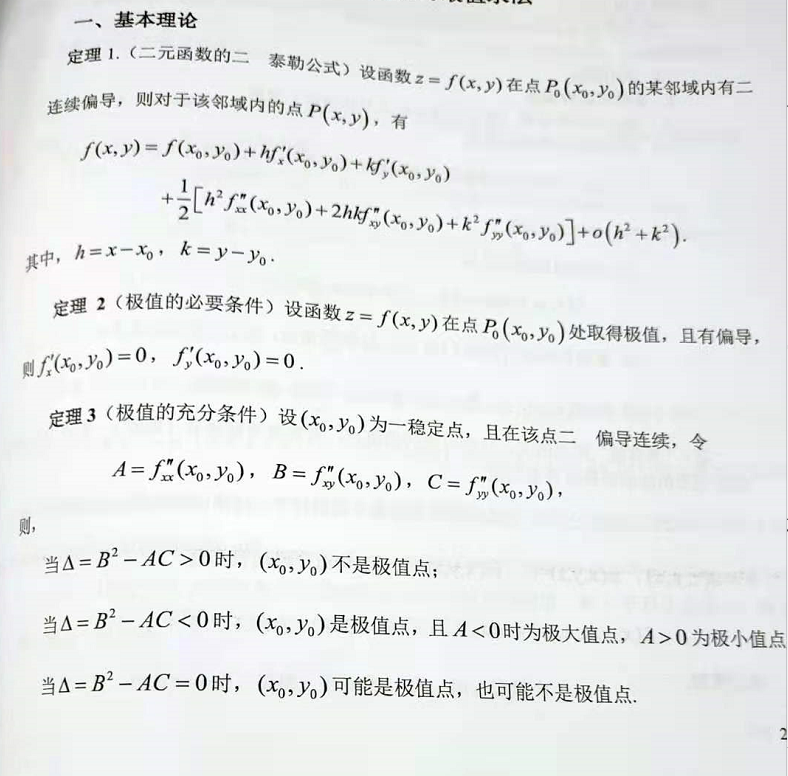 一、基本理论
定理 1.（二元函数的二 泰勒公式）设函数 z = f(x, y) 在点 P₀(x₀, y₀) 的某邻域内有二
连续偏导，则对于该邻域内的点 P(x, y)，有
f(x, y) = f(x₀, y₀) + hf′ₓ(x₀, y₀) + kf′_y(x₀, y₀)
+ 1/2[h² f″ₓₓ(x₀, y₀) + 2hkf″_xy(x₀, y₀) + k² f″_yy(x₀, y₀)] + o(h² + k²).
其中，h = x − x₀，k = y − y₀.
定理 2（极值的必要条件）设函数 z = f(x, y) 在点 P₀(x₀, y₀) 处取得极值，且有偏导，
则 f′ₓ(x₀, y₀) = 0，f′_y(x₀, y₀) = 0.
定理 3（极值的充分条件）设 (x₀, y₀) 为一稳定点，且在该点二 偏导连续，令
A = f″ₓₓ(x₀, y₀)，B = f″_xy(x₀, y₀)，C = f″_yy(x₀, y₀)，
则，
当 Δ = B² − AC > 0 时，(x₀, y₀) 不是极值点；
当 Δ = B² − AC < 0 时，(x₀, y₀) 是极值点，且 A < 0 时为极大值点，A > 0 为极小值点
当 Δ = B² − AC = 0 时，(x₀, y₀) 可能是极值点，也可能不是极值点.
2